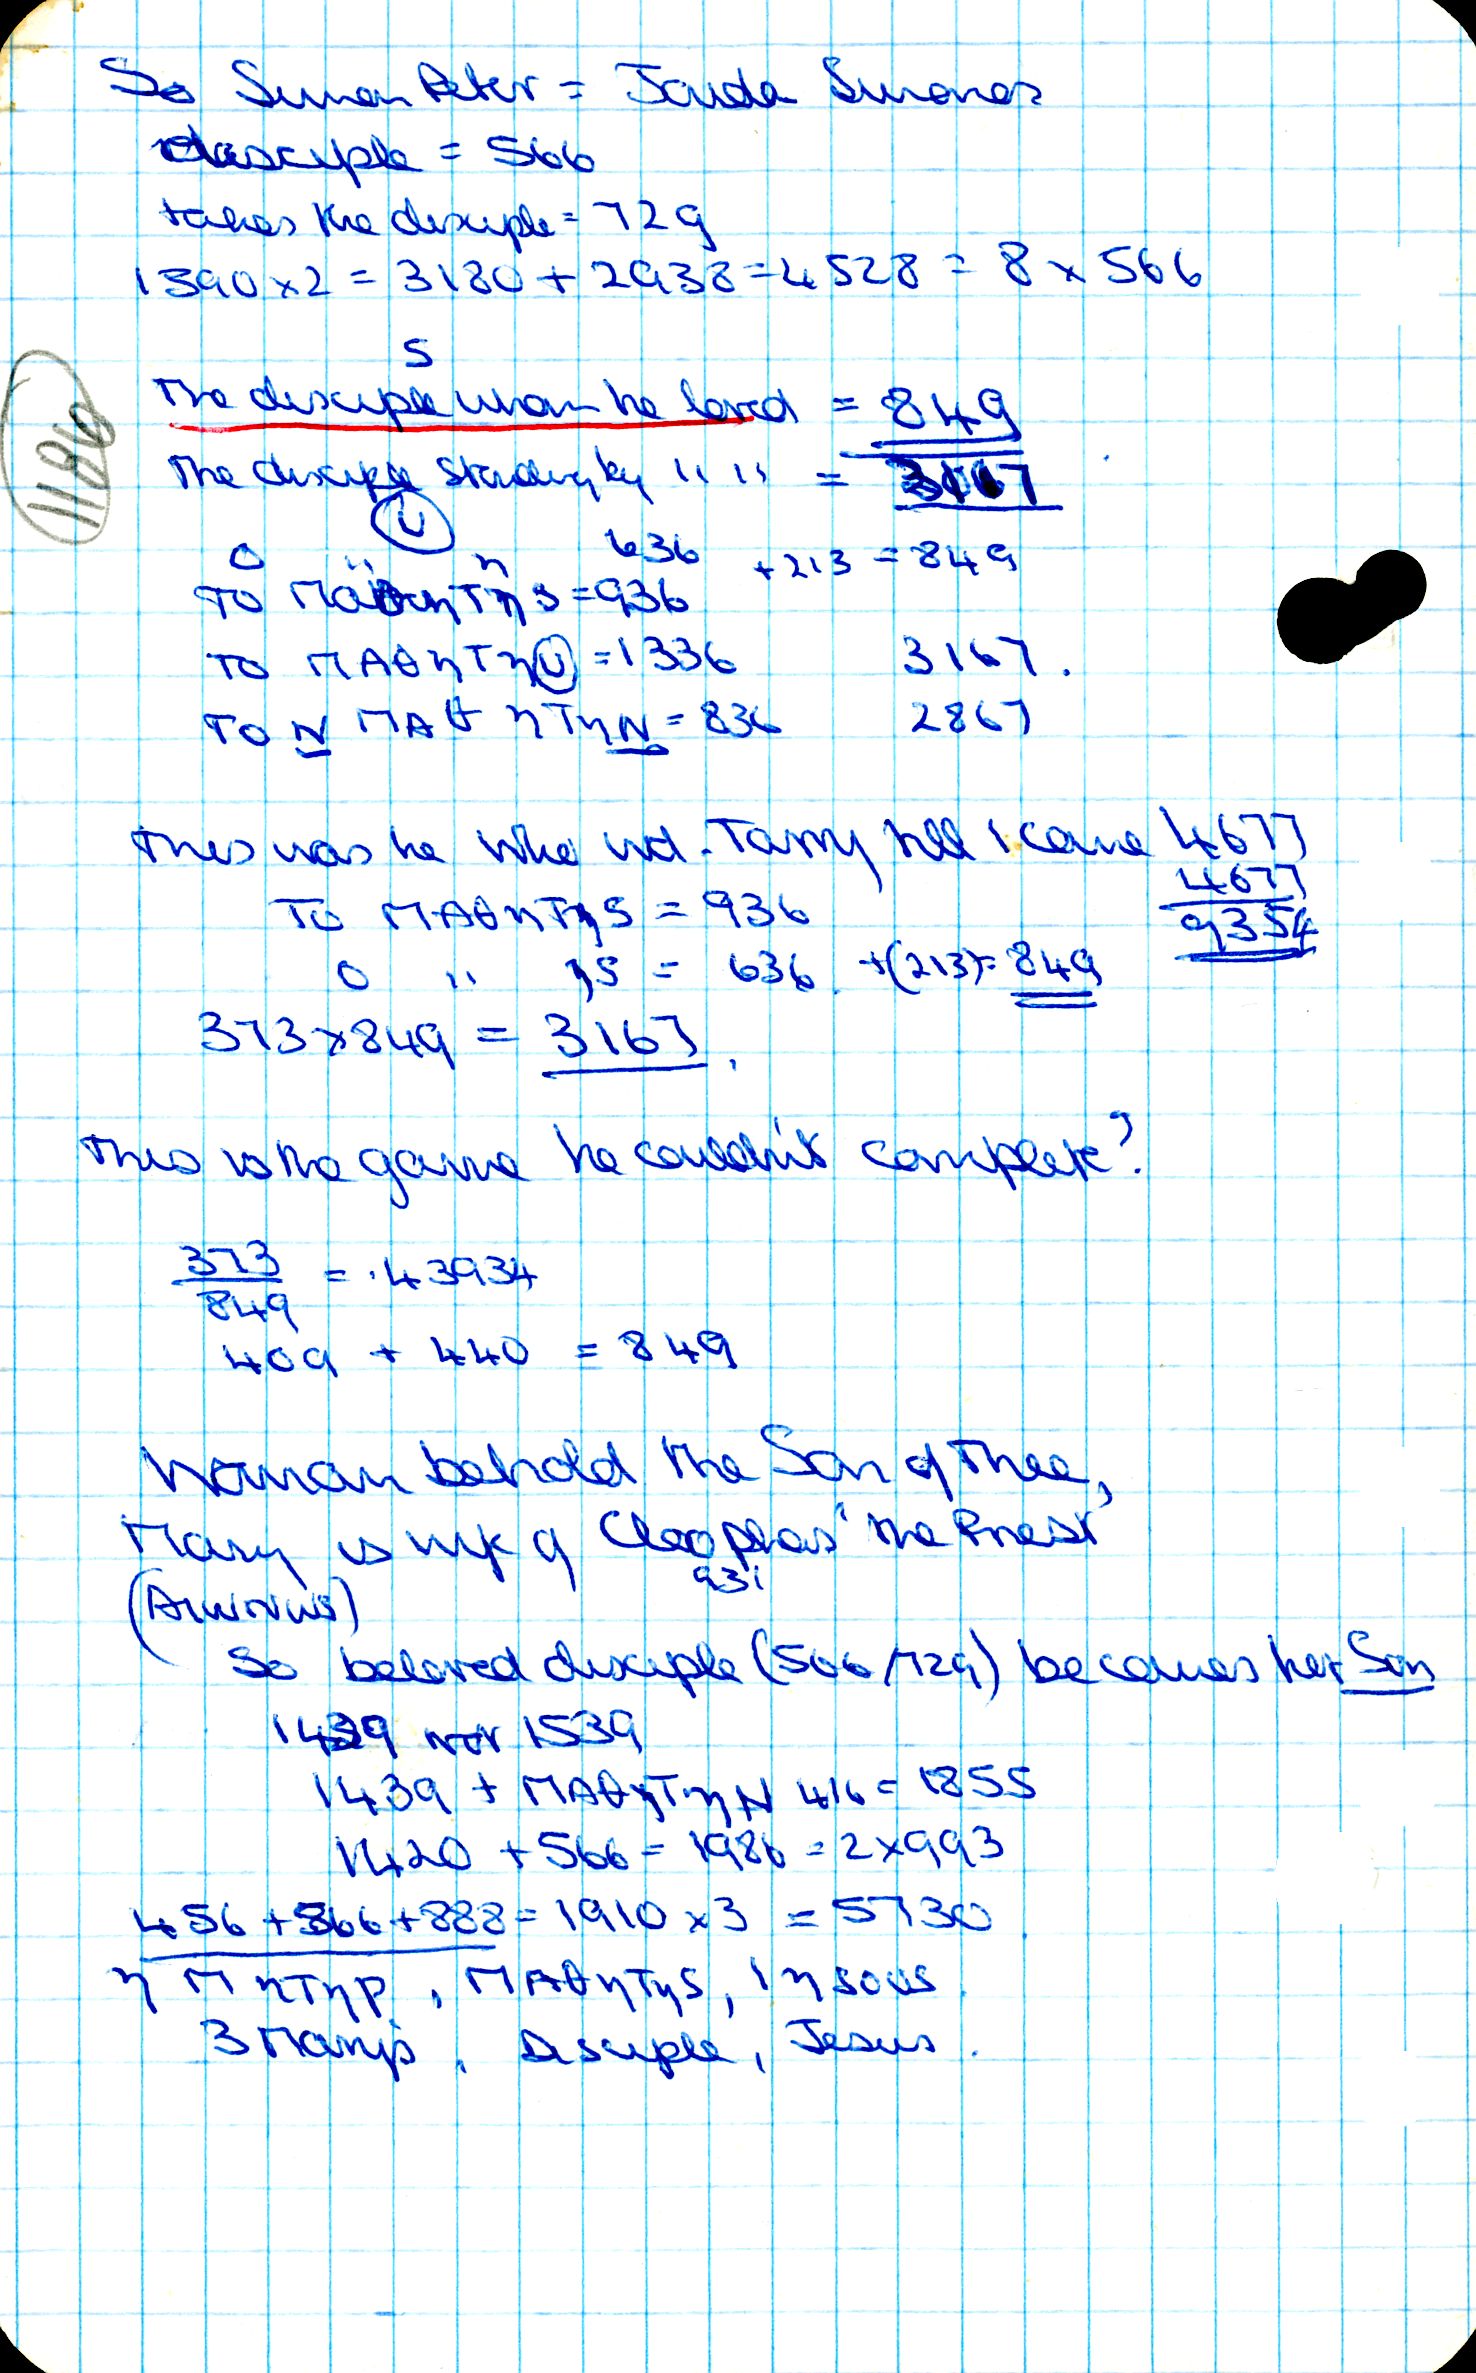 So Simon Peter = Jouda Simonos
disciple = 566
takes the disciple = 729
1390 x 2 = 3180 + 2938 = 4528 = 8 x 566
S
The disciple whom he loved = 849
1186
The disciple standing by " " = 3167
U
O " η 636 + 213 = 849
TO ΜαθηΤηS = 936
TO ΜΑθηΤηU = 1336 3167.
TO N ΜΑθηΤηN = 836 2867
This was he who wd. Tarry till I come 4677
4677
TO ΜΑθηΤηS = 936 9354
O " ηS = 636 + (213) = 849
373 x 849 = 3167.
This is the game he couldn't complete?
373
849 = .43934
409 + 440 = 849
Woman behold the Son of Thee,
Mary is wife of Cleophas' the Priest
931
So beloved disciple (566/729) becomes her Son
1439 not 1539
1439 + ΜΑθηΤηN 416 = 1855
1420 + 566 = 1986 = 2 x 993
456 + 566 + 888 = 1910 x 3 = 5730
η ΜηΤηΡ, ΜΑθηΤηS, Ιηsous.
3 Mary's, Disciple, Jesus.